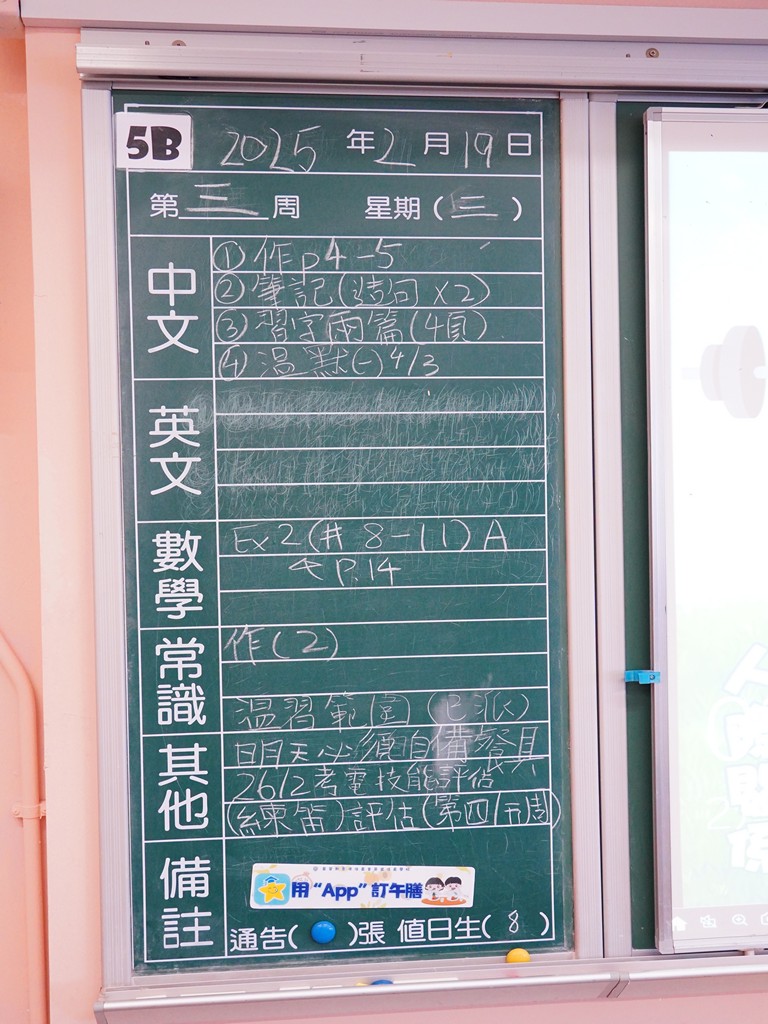 5B 2025 年 2 月 19 日
第 三 周 星期 ( 三 )
中文
① 作 p4-5
② 筆記 (造句 x2)
③ 習字兩篇 (4頁)
④ 溫默(一) 4/3
英文
數學
Ex 2 (# 8-11) A
P.14
常識
作 (2)
溫習範圍 (已派)
其他
明天必須自備餐具
26/2 考電技能評估
(練笛) 評估 (第四/五周)
備註
用“App”訂午膳
通告( )張 值日生( 8 )
人際關係